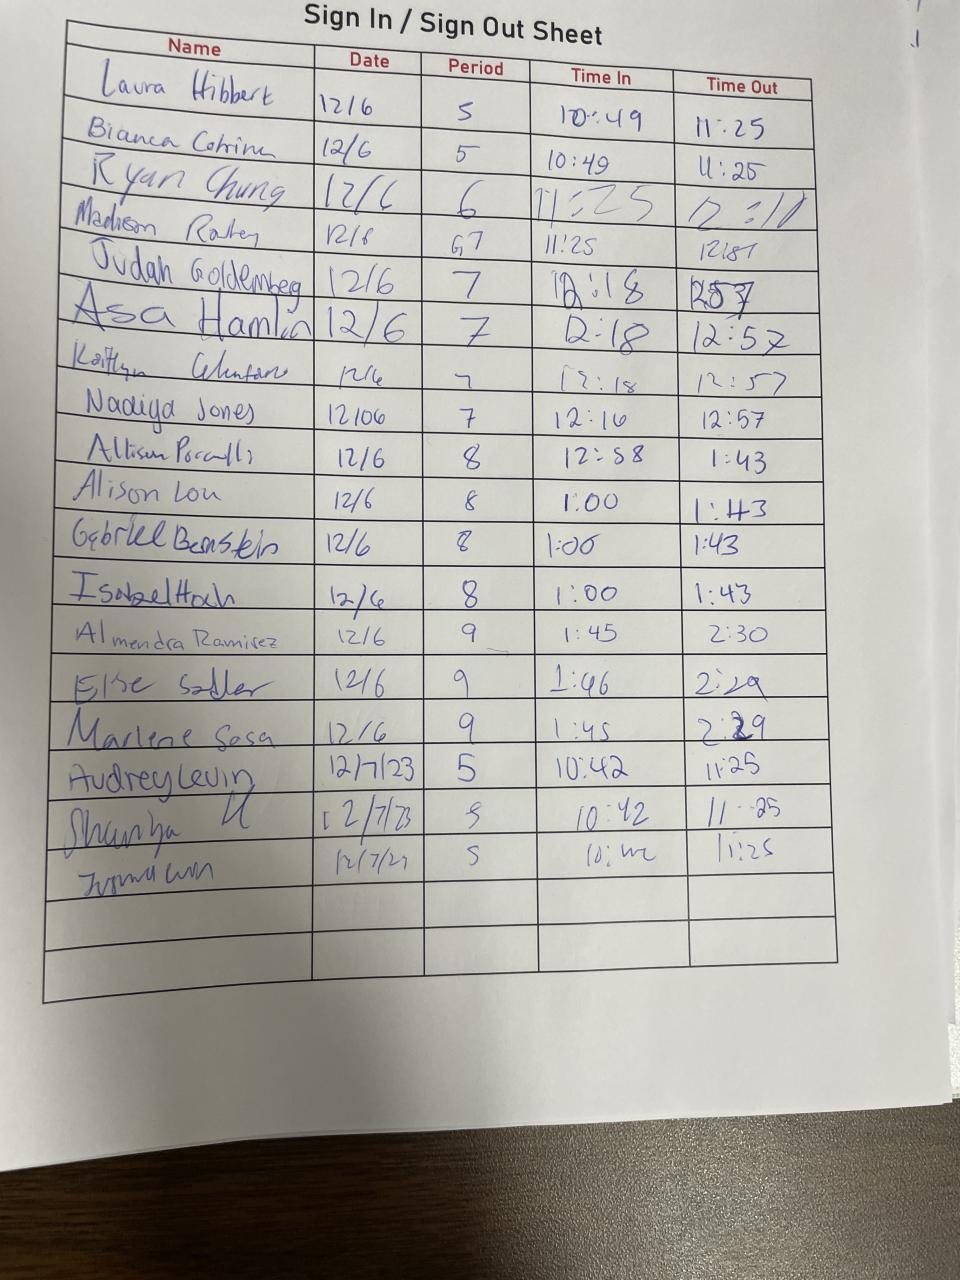 Sign In / Sign Out Sheet
Name Date Period Time In Time Out
Laura Hibbert 12/6 5 10:49 11:25
Bianca 12/6 5 10:49 11:25
Ryan Chung 12/6 6 11:25 12:11
Madison 12/6 67 11:25
Judah Goldemberg 12/6 7 12:18 1257
Asa Hamlin 12/6 7 12:18 12:57
Kaitlyn 12/6 7 12:18 12:57
Nadiya Jones 12/06 7 12:16 12:57
Allison 12/6 8 12:58 1:43
Alison Lou 12/6 8 1:00 1:43
Gabriel Bernstein 12/6 8 1:00 1:43
Isabel Hoch 12/6 8 1:00 1:43
Almendra Ramirez 12/6 9 1:45 2:30
Elise Sadler 12/6 9 1:46 2:29
Marlene Sosa 12/6 9 1:45 2:29
Audrey Levin 12/7/23 5 10:42 11:25
12/7/23 5 10:42 11:25
12/7/23 5 11:25